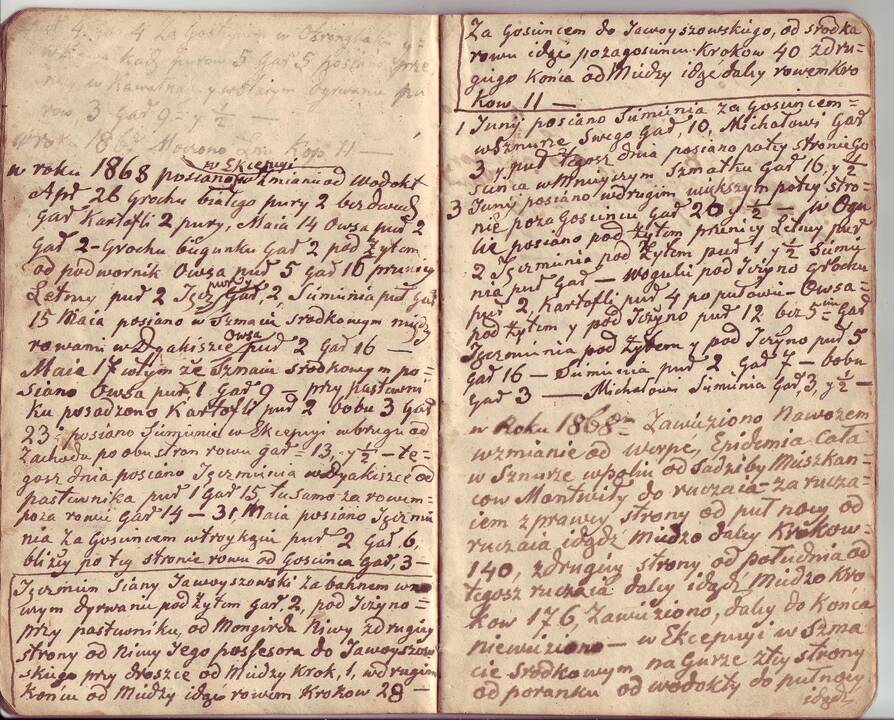 4 Za Gosćincem w Okrongłak
Gar 5 posiano
w Kawałku y
row 3 Gar 9 y ½ —
w roku 1867 Moczono Lnu Kop 11 —
w roku 1868 posiano w Ekcepuyi w Zmianie od Wodokt
Apr 26 Grochu białego pury 2 bez dwuch
Gar Kartofli 2 pury, Maia 14 Owsa pur 2
Gar 2 – Grochu Gar 2 pod Żytem
od podwornik Owsa pur 5 Gar 16 przenicy
Letniey pur 2 Jęcz pur y Gar, 2, Siminia pur Gar
15 Maia posiano w Szmacie srodkowym między
rowami w Dyakiszce Owsa pur 2 Gar 16 —
Maia 17 w tym że Szmacie srodkowym po=
siano Owsa pur 1 Gar 9 – przy pastewni=
ku posadzono Kartofli pur 2 bobu 3 Gar
23 posiano Siminie w Ekcepuyi w brzegu od
Zachodu po obu stron rowu gar 13, y ½ – te=
gosz dnia posiano Jęczminia w Dyakiszce od
pastewnika pur 1 Gar 15 ta samo za rowem=
poza rowie Gar 14 – 31 Maia posiano Jęczmi
nia Za Gosuncem w troykącie pur 2 Gar 6,
bliży po tey stronie rowu od Gosunca Gar, 3 –
Jęczmień Siany Jawoyszowski za bahnem w no=
wym dyrwanie pod Żytem Gar, 2, pod Jczyno=
przy pastewniku, od Mongirda Niwy z drugiey
strony od Niwy Jego possesora do Jawoyszow
skiego przy drosze od Miedzy Krok, 1, w drugim
Końcu od Miedzy idąc rowem Krokow 28 —
Za Gosuncem do Jawoyszowskiego, od srodka
rowu idąc poza gosuncu Krokow 40 z dru=
giego Końca od Miedzy idąc daley rowem Kro
kow 11 —
1 Junij posiano Siminia za Gosuncem=
w Sznurze Swego Gar, 10, Michałowi Gar
3 y puł tegosz dnia posiano po tey stronie go
sunca w Mnieyszym Szmatku Gar 16 y ½
3 Junij posiano w drugim większym po tey stro=
nie poza Gosuncu Gar 20 y ½ — w Ogu
lie posiano pod Żytem przenicy Letniey pur
2 Jęczminia pod Żytem pur 1 y ½ Simi
nia pur Gar — wogulie pod Jczyno Grochu
pur 2, Kartofli pur 4 po pułowie – Owsa=
pod Żytem y pod Jczyno pur 12 bez 5 Gar
Jęczminia pod Żytem y pod Jczyno pur 5
Gar 16 – Siminia pur 2 Gar 7 – bobu
Gar 3 — Michałowi Siminia Gar 3 y ½ —
w Roku 1868 Zawieziono Nawozem
w zmianie od Epidemia Cała
w Sznurze wpolu od Sadziby Mieszkan=
cow Montwiły do ruczaia – za rucza=
iem z prawey strony od pułnocy od
ruczaia idąc Miedzo daley Krokow=
140, z drugiey strony od południa od
tegosz ruczaia daley idąc Miedzo Kro
kow 176, Zawieziono, daley do Końca
niewieziono — w Ekcepuyi w Szma
cie srodkowym na Gurze z tey strony
od poranku od wodokty do pułnocy
idąc